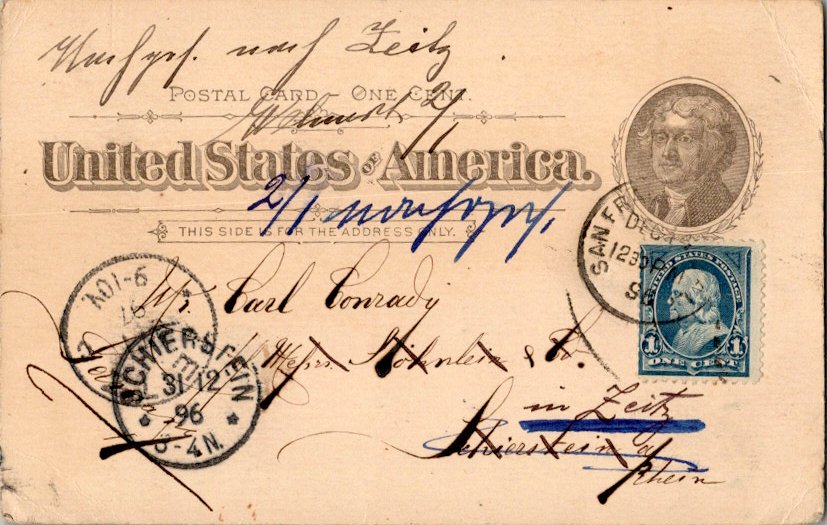 nach Zeitz
POSTAL CARD – ONE CENT.
2/1
United States OF America.
2/1
THIS SIDE IS FOR THE ADDRESS ONLY.
SAN FR
DEC
1230P
96
UNITED STATES POSTAGE
1 ONE CENT 1
Mr. Carl Conrady
9-10V
SCHIERSTEIN
31 12
96
3-4N.
Messrs. Söhnlein & Co.
in Zeitz
Schierstein a/
Rhein